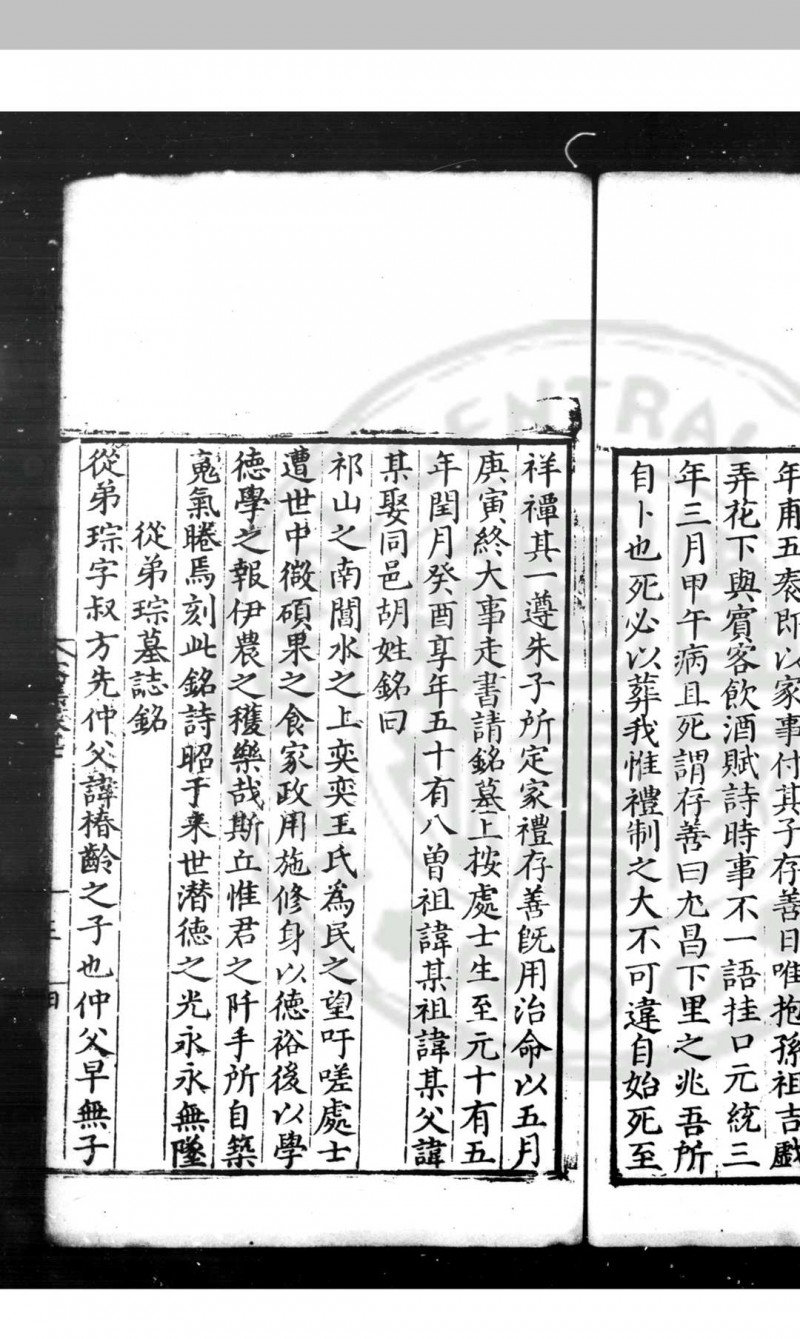 年甫五袠即以家事付其子存善日唯抱孫祖吉戲
弄花下與賓客飲酒賦詩時事不一語挂口元統三
年三月甲午病且死謂存善曰尤昌下里之兆吾所
自卜也死必以葬我惟禮制之大不可違自始死至
祥禫其一遵朱子所定家禮存善既用治命以五月
庚寅終大事走書請銘墓上按處士生至元十有五
年閏月癸酉享年五十有八曾祖諱某祖諱某父諱
某娶同邑胡姓銘曰
祁山之南閶水之上奕奕王氏為民之望吁嗟處士
遭世中微碩果之食家政用施修身以德裕後以學
德學之報伊農之穫樂哉斯丘惟君之阡手所自築
䰟氣睠焉刻此銘詩昭于来世潜德之光永永無墬
從弟琮墓誌銘
從弟琮字叔方先仲父諱椿齡之子也仲父早無子
CENTRAL